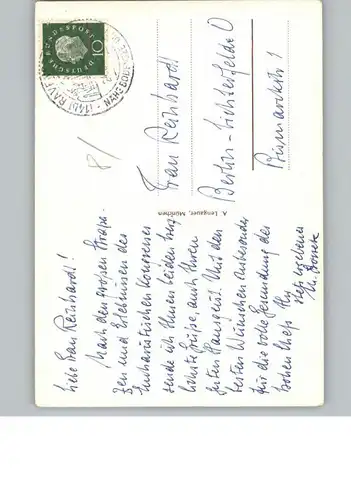 DEUTSCHE BUNDESPOST
10
(14b) RAVE
NAHE BODEN
8/
Frau Reinhardt
Berlin-Lichterfelde O
Bismarckstr 1
A. Lengauer, München
Liebe Frau Reinhardt!
Nach den großen Strapa-
zen und Erlebnissen des
Eucharistischen Kongresses
sende ich Ihnen beiden
Grüße, auch Ihrem
guten Hausgeist. Mit den
besten Wünschen insbesondere
für die volle Gesundung des
hohen Chefs Ihr
stets ergebener